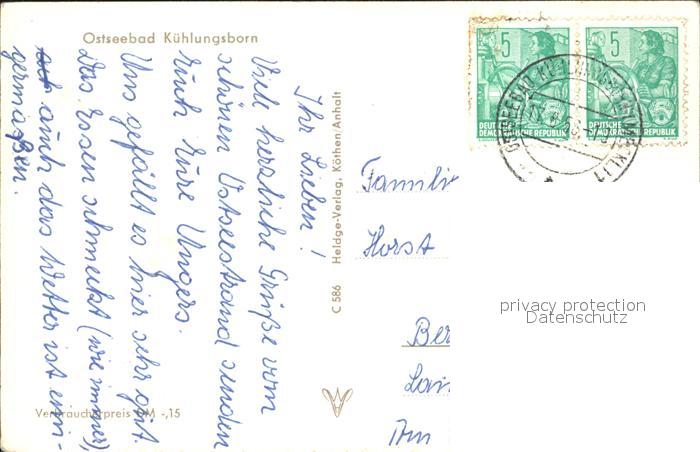 Ostseebad Kühlungsborn
Ihr Lieben!
Viel herzliche Grüße vom
schönen Ostseestrand senden
Euch Eure Ungers.
Uns gefällt es hier sehr gut.
Das Essen schmeckt (wie immer),
auch das Wetter ist eini-
germaßen.
Verbraucherpreis DM -,15
C 586 Heldge-Verlag, Köthen/Anhalt
5
DEUTSCHE
DEMOKRATISCHE REPUBLIK
5
DEUTSCHE
DEMOKRATISCHE REPUBLIK
OSTSEEBAD KÜHLUNGSBORN
Familie
Horst
Ber
Am
privacy protection
Datenschutz